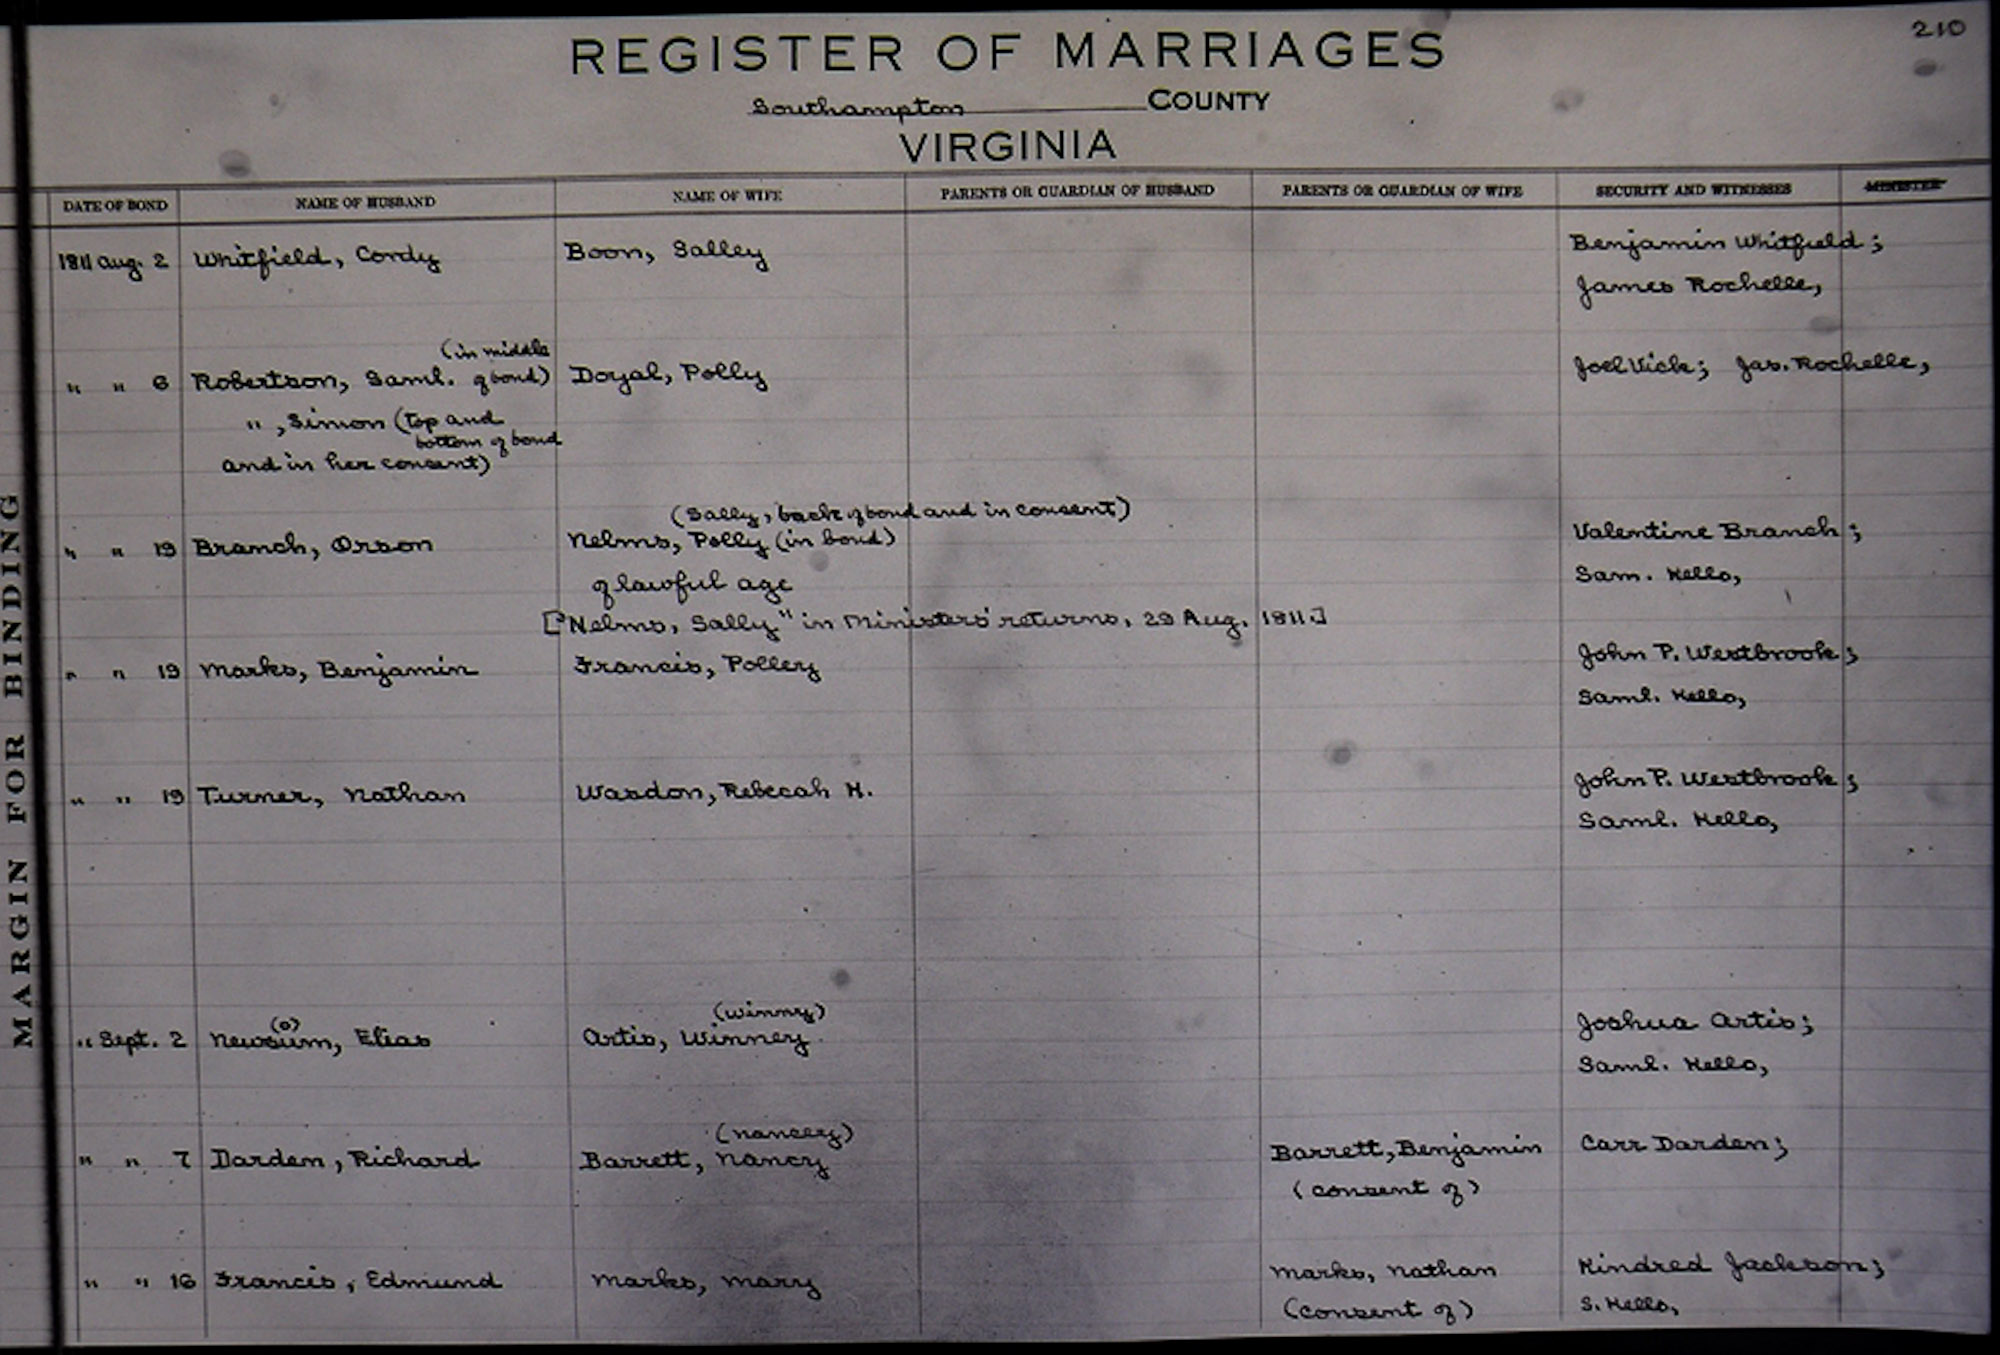 210
REGISTER OF MARRIAGES
Southampton COUNTY
VIRGINIA
DATE OF BOND NAME OF HUSBAND NAME OF WIFE PARENTS OR GUARDIAN OF HUSBAND PARENTS OR GUARDIAN OF WIFE SECURITY AND WITNESSES MINISTER
1811 Aug. 2 Whitfield, Cordy Boon, Salley Benjamin Whitfield;
James Rochelle,
(in middle
" " 6 Robertson, Saml. of bond) Doyal, Polly Joel Vick; Jas. Rochelle,
" , Simon (top and
bottom of bond
and in her consent)
(Sally, back of bond and in consent)
" " 19 Branch, Orson Nelms, Polly (in bond) Valentine Branch;
of lawful age Sam. Kello,
["Nelms, Sally" in Ministers' returns, 29 Aug. 1811.]
" " 19 Marks, Benjamin Francis, Polley John P. Westbrook;
Saml. Kello,
" " 19 Turner, Nathan Wasdon, Rebecah H. John P. Westbrook;
Saml. Kello,
(o) (Winny)
" Sept. 2 Newsum, Elias Artis, Winney Joshua Artis;
Saml. Kello,
(Nancey)
" " 7 Darden, Richard Barrett, Nancy Barrett, Benjamin Carr Darden;
(consent of)
" " 16 Francis, Edmund Marks, Mary Marks, Nathan Kindred Jackson;
(consent of) S. Kello,
MARGIN FOR BINDING